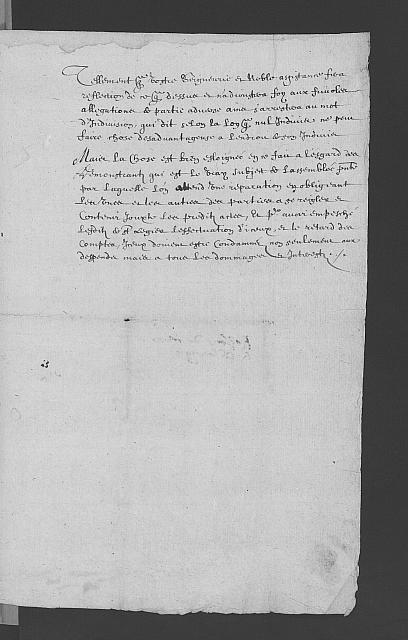 Tellement q̃ vostre Seigneurie et Noble assistance fera
reflection de ce q̃ dessus et nadioustera foy aux friuoles
allegations de partie aduerse ains sarrestera au mot
d'Indiuision, qui dit selon la loy q̃ nul Induiis ne peu
faire chose desaduantageuse a lendroit de son Induiis
Mais la Chose est bien esloignee en ce fait a lesgard des
Remonstrant qui est le vray subject de lassemblee pnte
par laquelle lon attend une reparation en obligeant
les uns et les autres des parties a se regler et
Contenir Jouxte les predits actes, et pr avoir empesche
lesdits de St Legier leffectuation d'iceux, et le retard des
Comptes, Jceux doiuent estre Condamné non seulement aux
despends mais a tous les dommages et Interests ./.